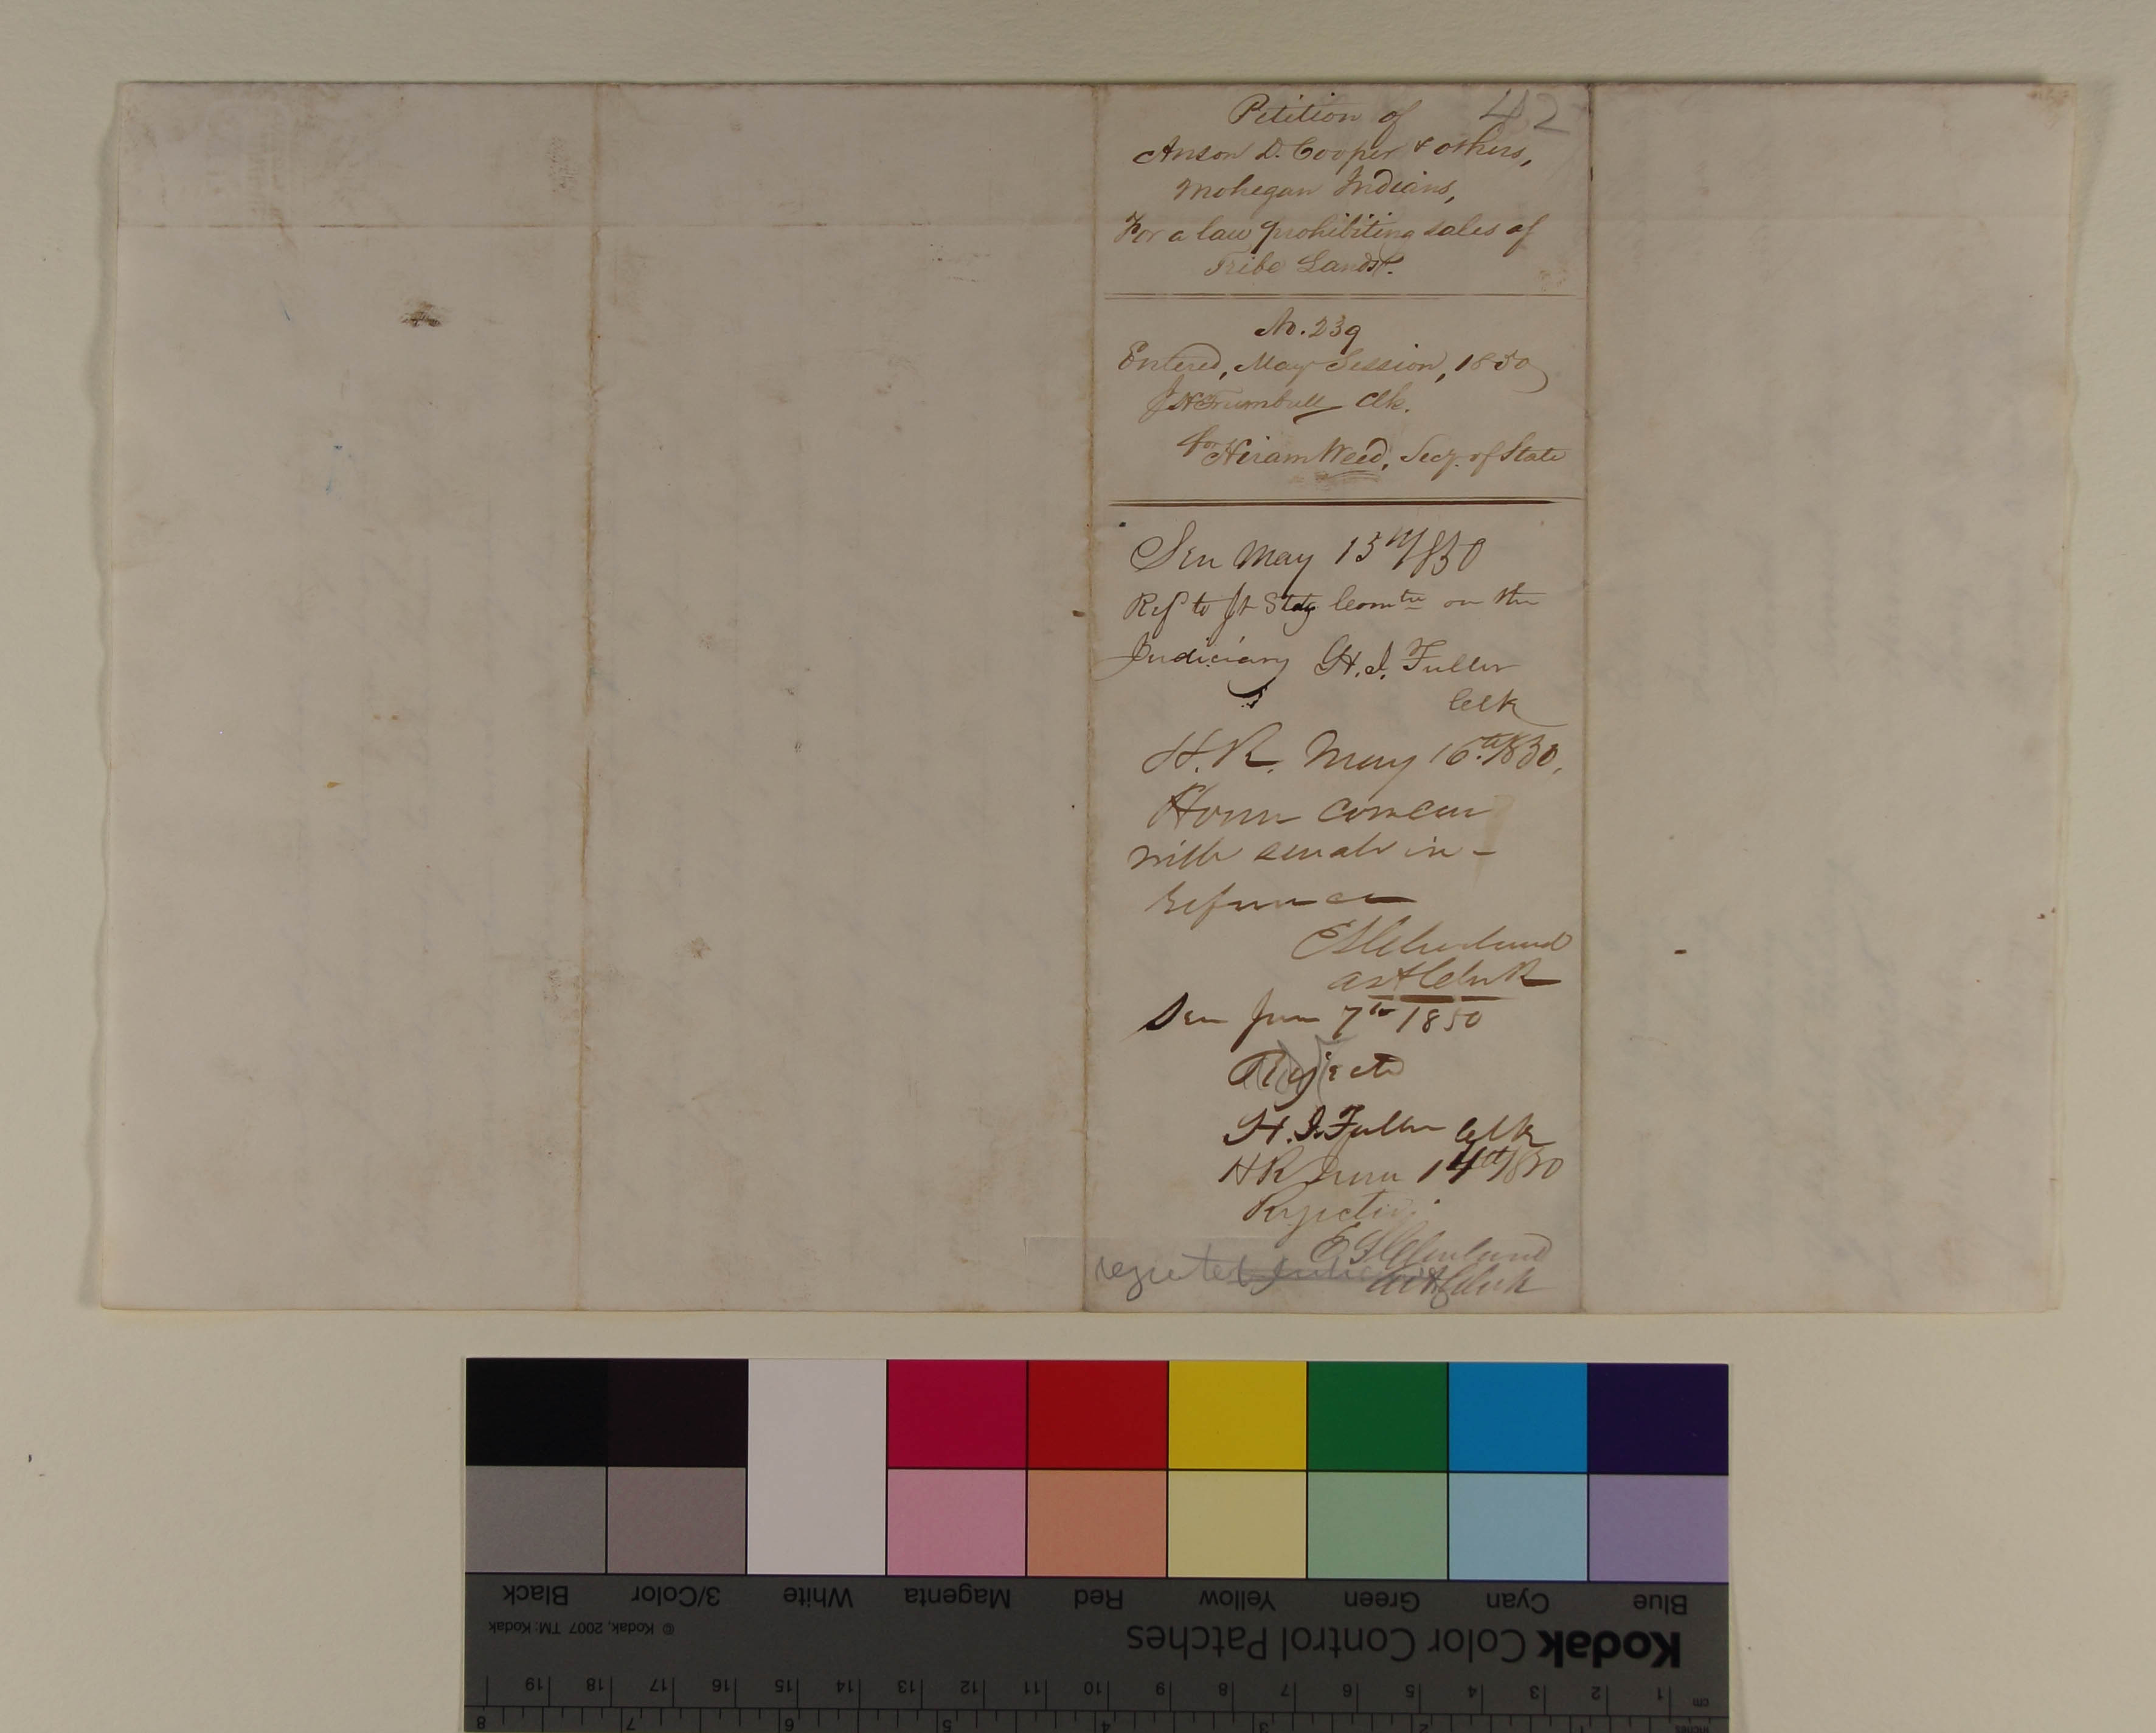 42
Petition of
Anson D. Cooper & others,
Mohegan Indians,
For a law prohibiting sales of
Tribe Lands.
No. 239
Entered, May Session, 1850
J H Trumbull Clk.
for Hiram Weed, Secy. of State
Sen May 15th 1850
Ref to Jt Stdg Comtee on the
Judiciary H. I. Fuller
Clk
H. R. May 16th 1850.
House concur
with senate in
reference
E S Cleveland
asst Clerk
Sen June 7th 1850
Rejected
H. I. Fuller Clk
H R June 14th 1850
Rejected.
E S Cleveland
asst Clerk
rejected
Black
3/Color
White
Magenta
Red
Yellow
Green
Cyan
Blue
© Kodak, 2007 TM: Kodak
Kodak Color Control Patches
cm 1 2 3 4 5 6 7 8 9 10 11 12 13 14 15 16 17 18 19
inches 1 2 3 4 5 6 7 8